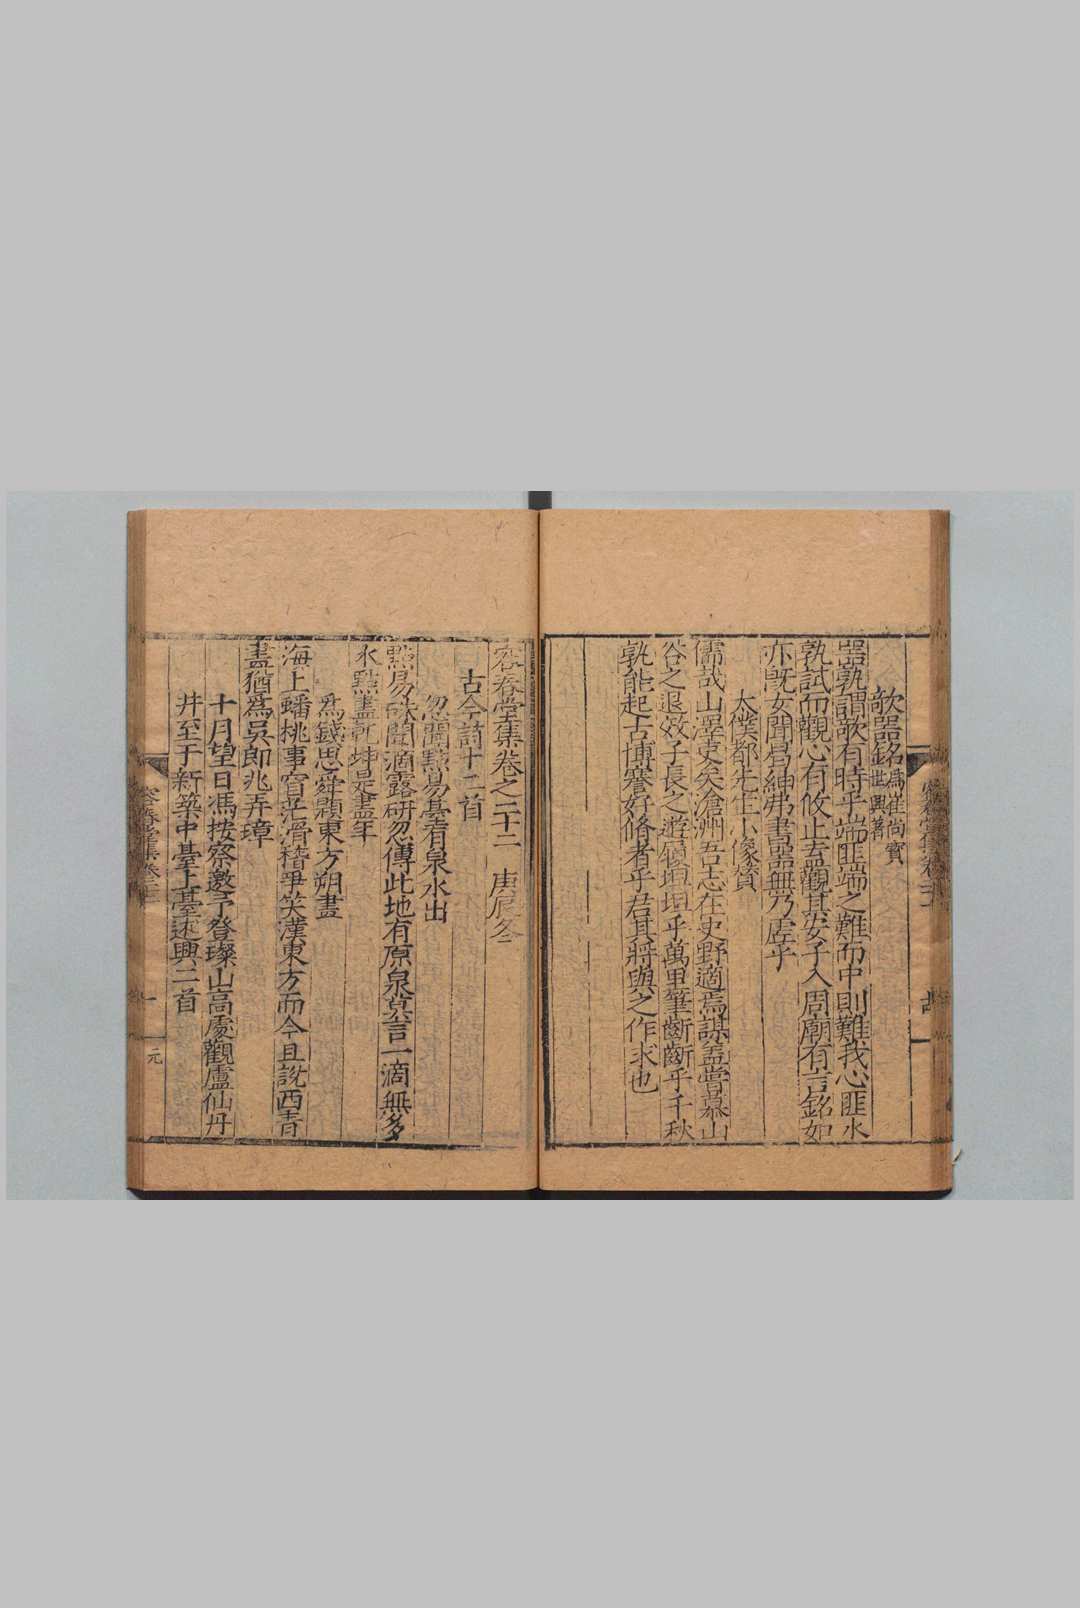 欹器銘為崔尚寶世興著
器孰謂欹有時乎端匪端之難而中則難我心匪水
孰試而觀心有攸止去觀其安子入周廟有言銘如
亦既女聞曷紳弗書器無乃虛乎
太僕都先生小像贊
儒哉山澤吏矣滄洲吾志在史野適焉謀盖嘗慕山
谷之退效子長之遊優坦坦乎萬里筆齗齗乎千秋
孰能起古博謇好脩者乎君其將與之作求也
容春堂集卷之二十二 庚辰冬
古今詩十二首
忽聞點易臺有泉水出
點易硃開滴露研忽傳此地有原泉莫言一滴無多
水點盡乾坤是盡年
為錢思舜題東方朔畫
海上蟠桃事窅茫滑稽爭笑漢東方而今且說西青
畫猶為吳郎兆弄璋
十月望日馮按察邀予登璨山高處觀盧仙丹
井至于新築中臺上臺述興二首
容春堂集卷二十二
一
元